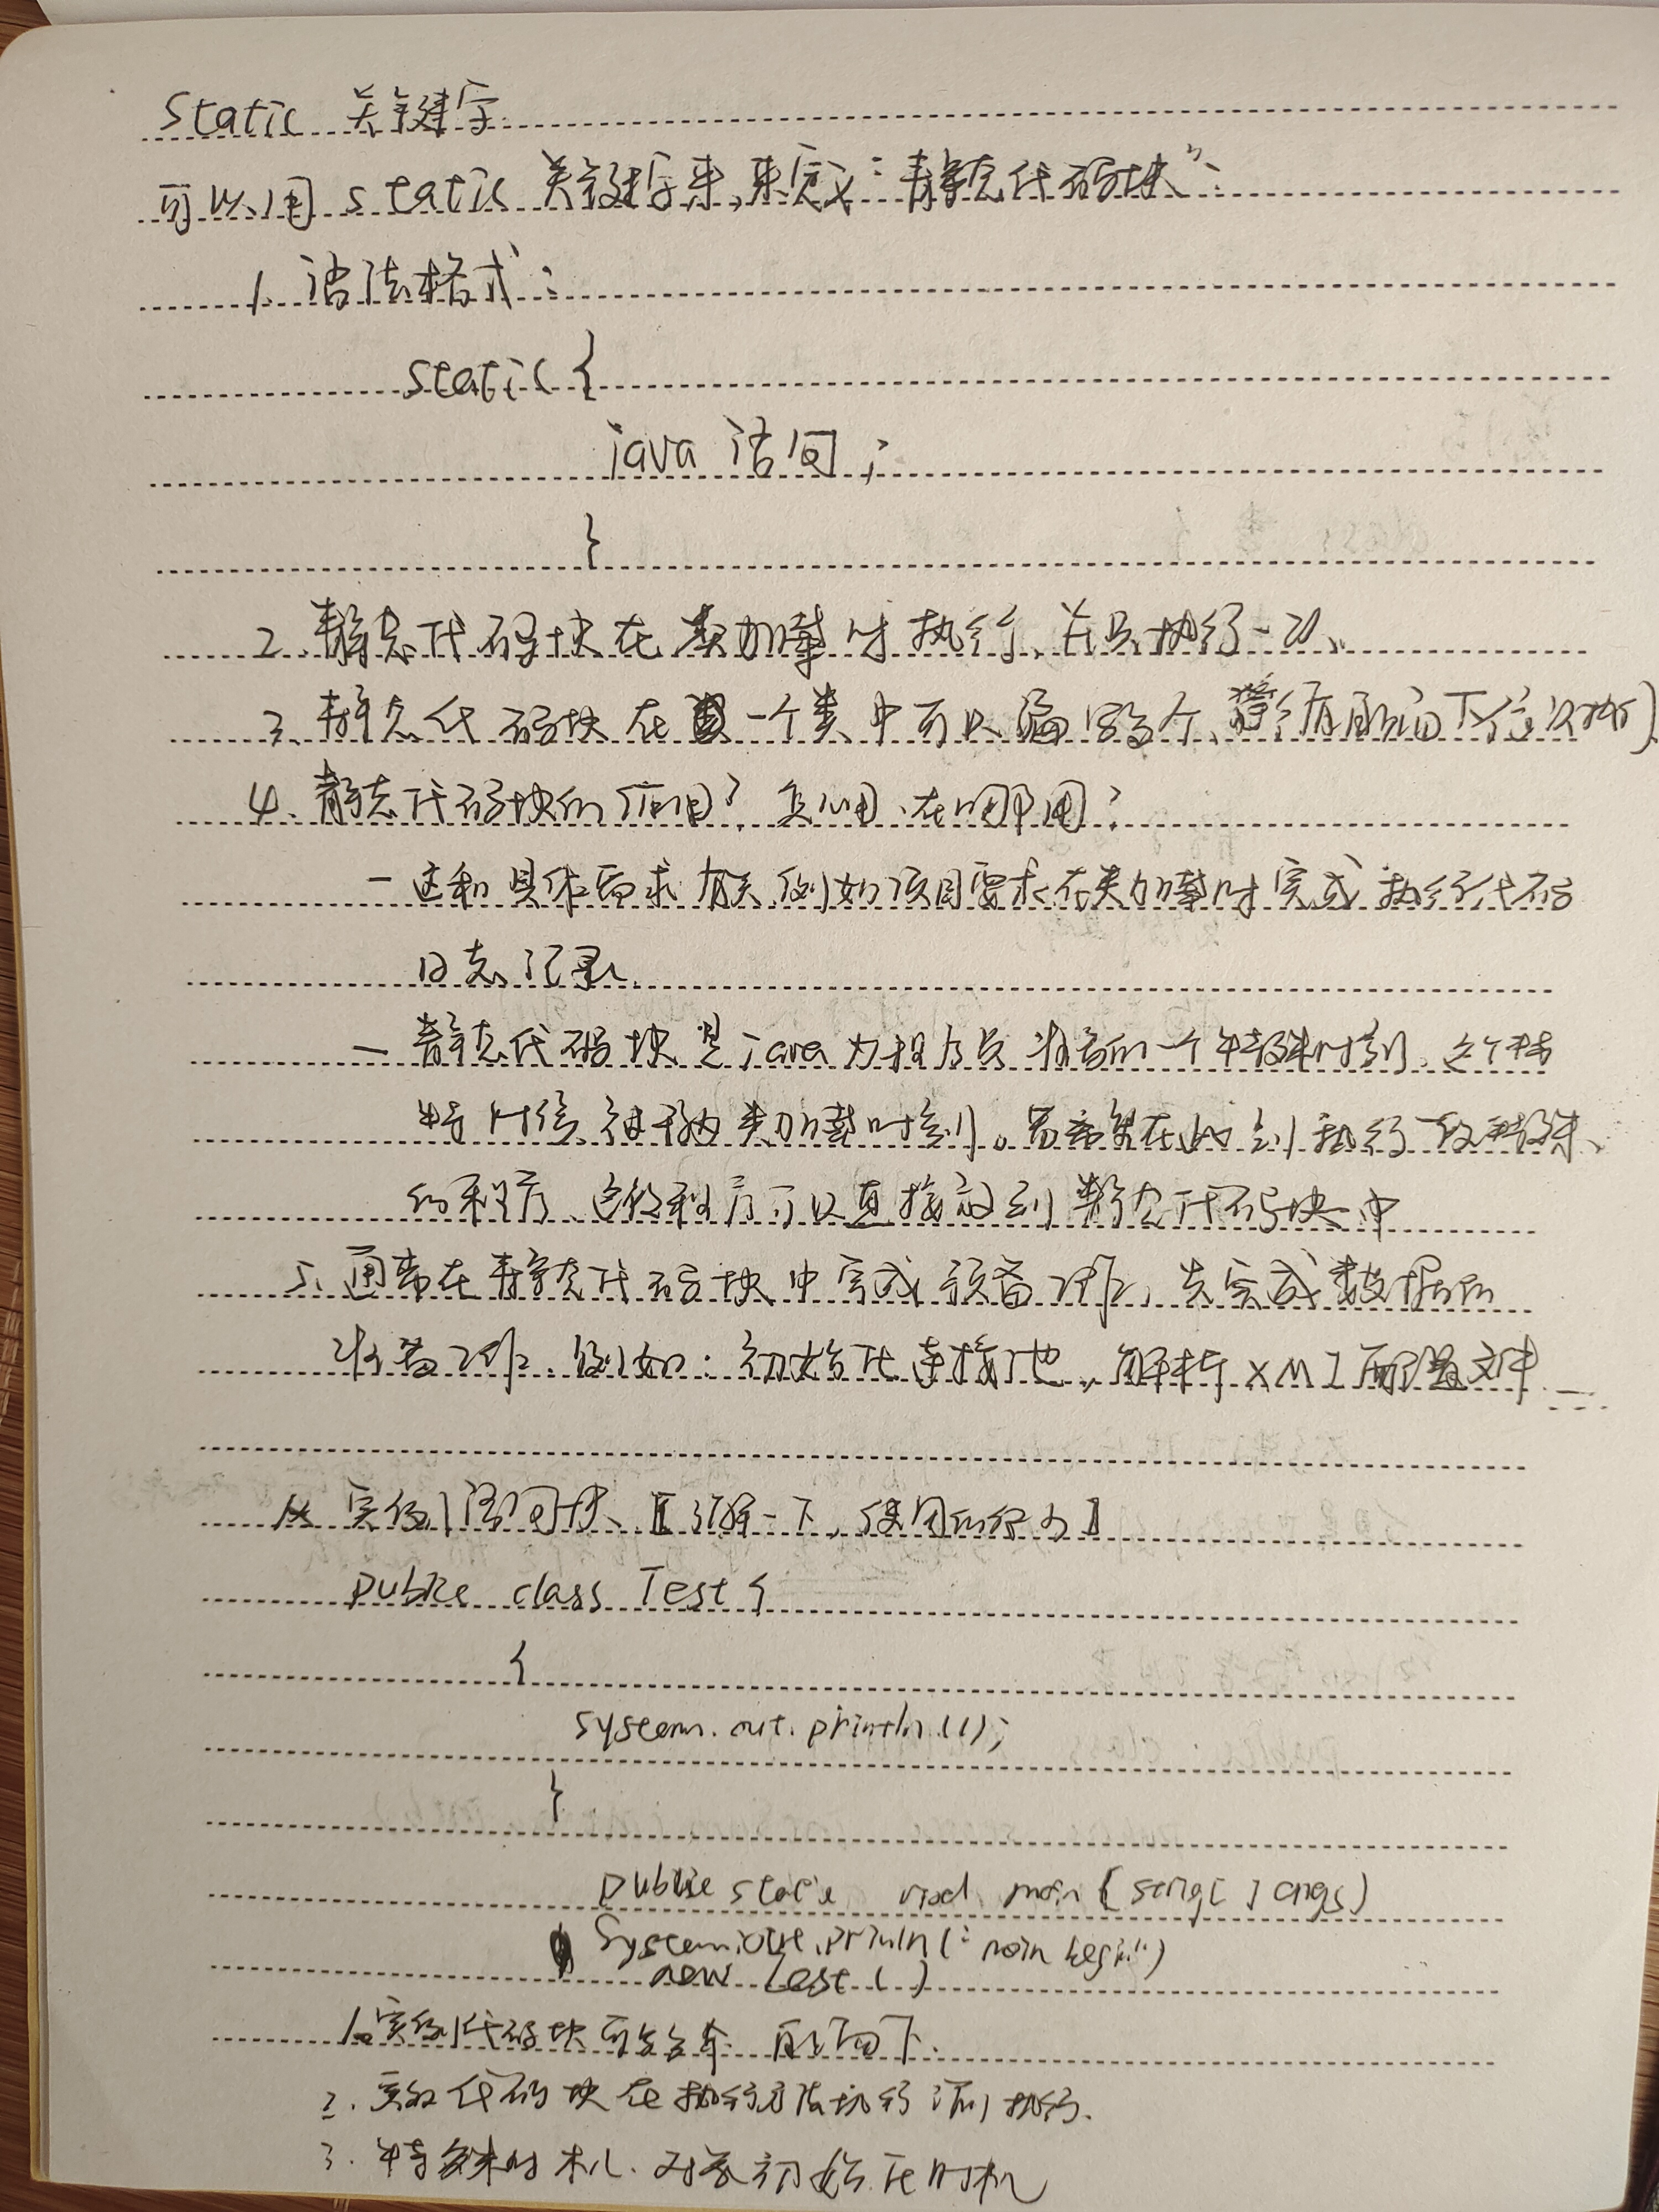 Static 关键字
可以用 static 关键字来,来定义"静态代码块":
1. 语法格式:
static {
java 语句;
}
2、静态代码块在类加载时执行、并只执行一次、
3、静态代码块在一个类中可以编写多个、
4、静态代码块的作用? 怎么用、在哪用?
- 这和具体需求有关,例如项目要求在类加载时完成执行代码
日志记录.
- 静态代码块是java为程序员准备的一个特殊时刻、这个
特殊时刻被称为类加载时刻。若希望在此刻执行一段特殊、
的程序、这段程序可以直接放到静态代码块中
5、通常在静态代码块中完成预备工作、先完成数据的
准备工作、例如:初始化连接池,解析XML配置文件
实例语句块、【了解一下,使用的很少】
public class Test {
{
System.out.println(1);
}
public static void main(String[] args)
System.out.println("main begin")
new Test()
1.实例代码块可以多个. 自上而下.
2. 实例代码块在构造方法执行之前执行.
3. 特殊时机. 对象初始化时机